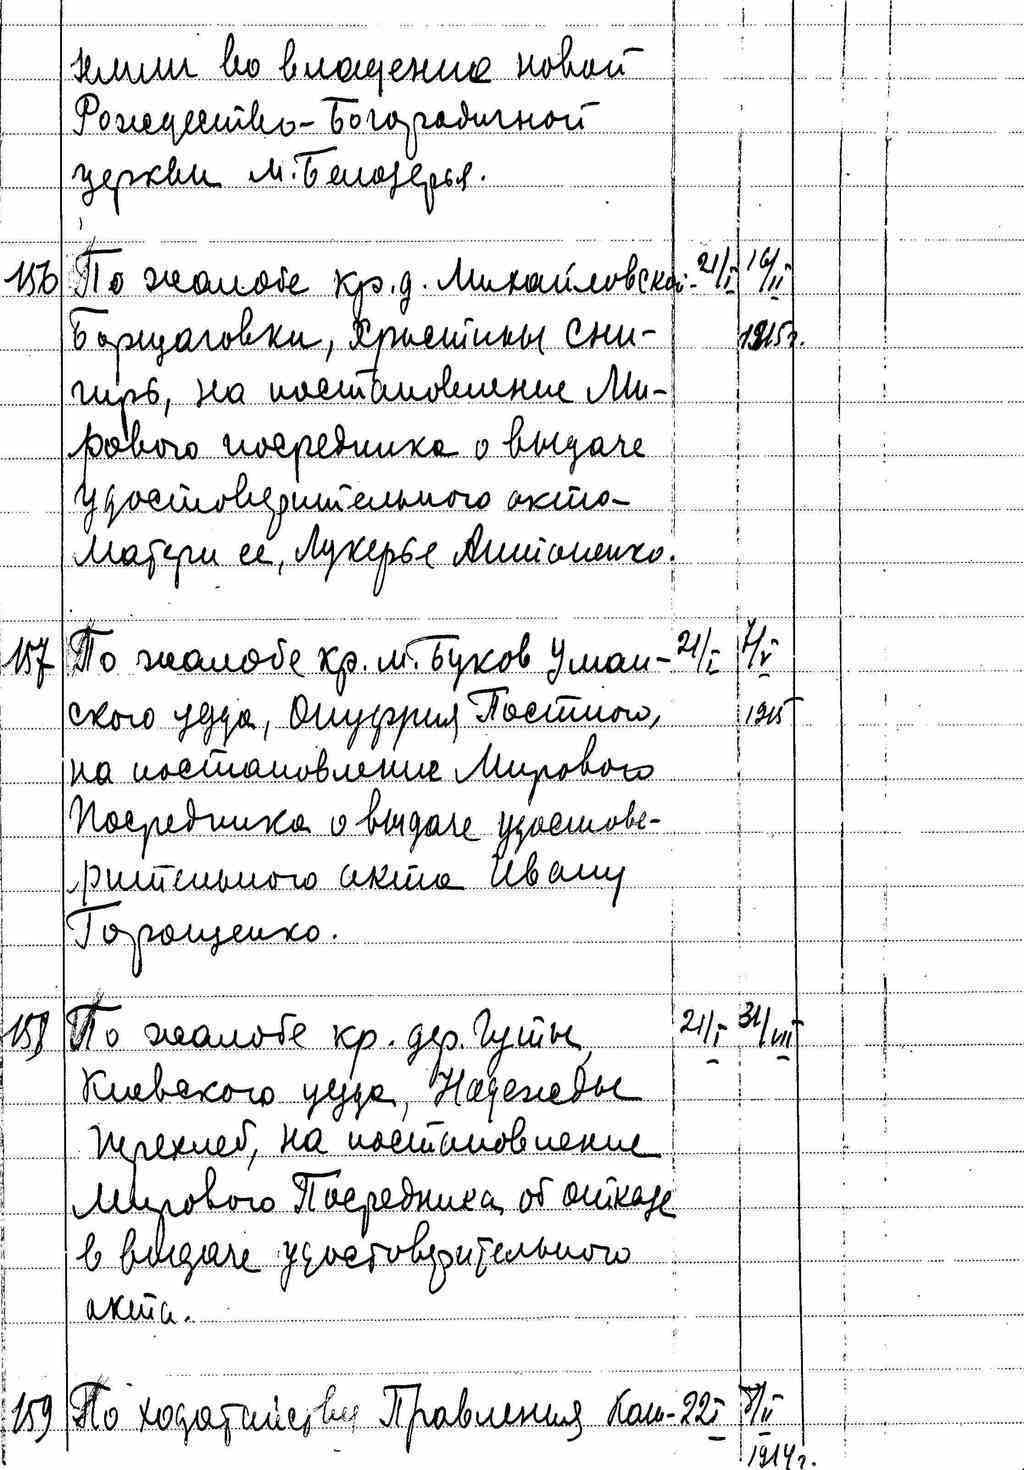 земли во владение новой
Рождество-Богородичной
церкви м. Белозерья.
156 По жалобе кр. д. Михайловской- 21/I 16/II
Борщаговки, Христины Сни- 1915г.
гирь, на постановление Ми-
рового посредника о выдаче
удостоверительного акта
матери ее, Лукерье Антоненко.
157 По жалобе кр. м. Буков Уман- 21/I 7/V
ского уезда, Онуфрия Постного, 1915
на постановление Мирового
Посредника о выдаче удостове-
рительного акта Ивану
Горощенко.
158 По жалобе кр. дер. Гуты, 21/I 31/VII
Киевского уезда, Надежды
Перехлеб, на постановление
Мирового Посредника об отказе
в выдаче удостоверительного
акта.
159 По ходатайству Правления Каш- 22/I /II
1914г.